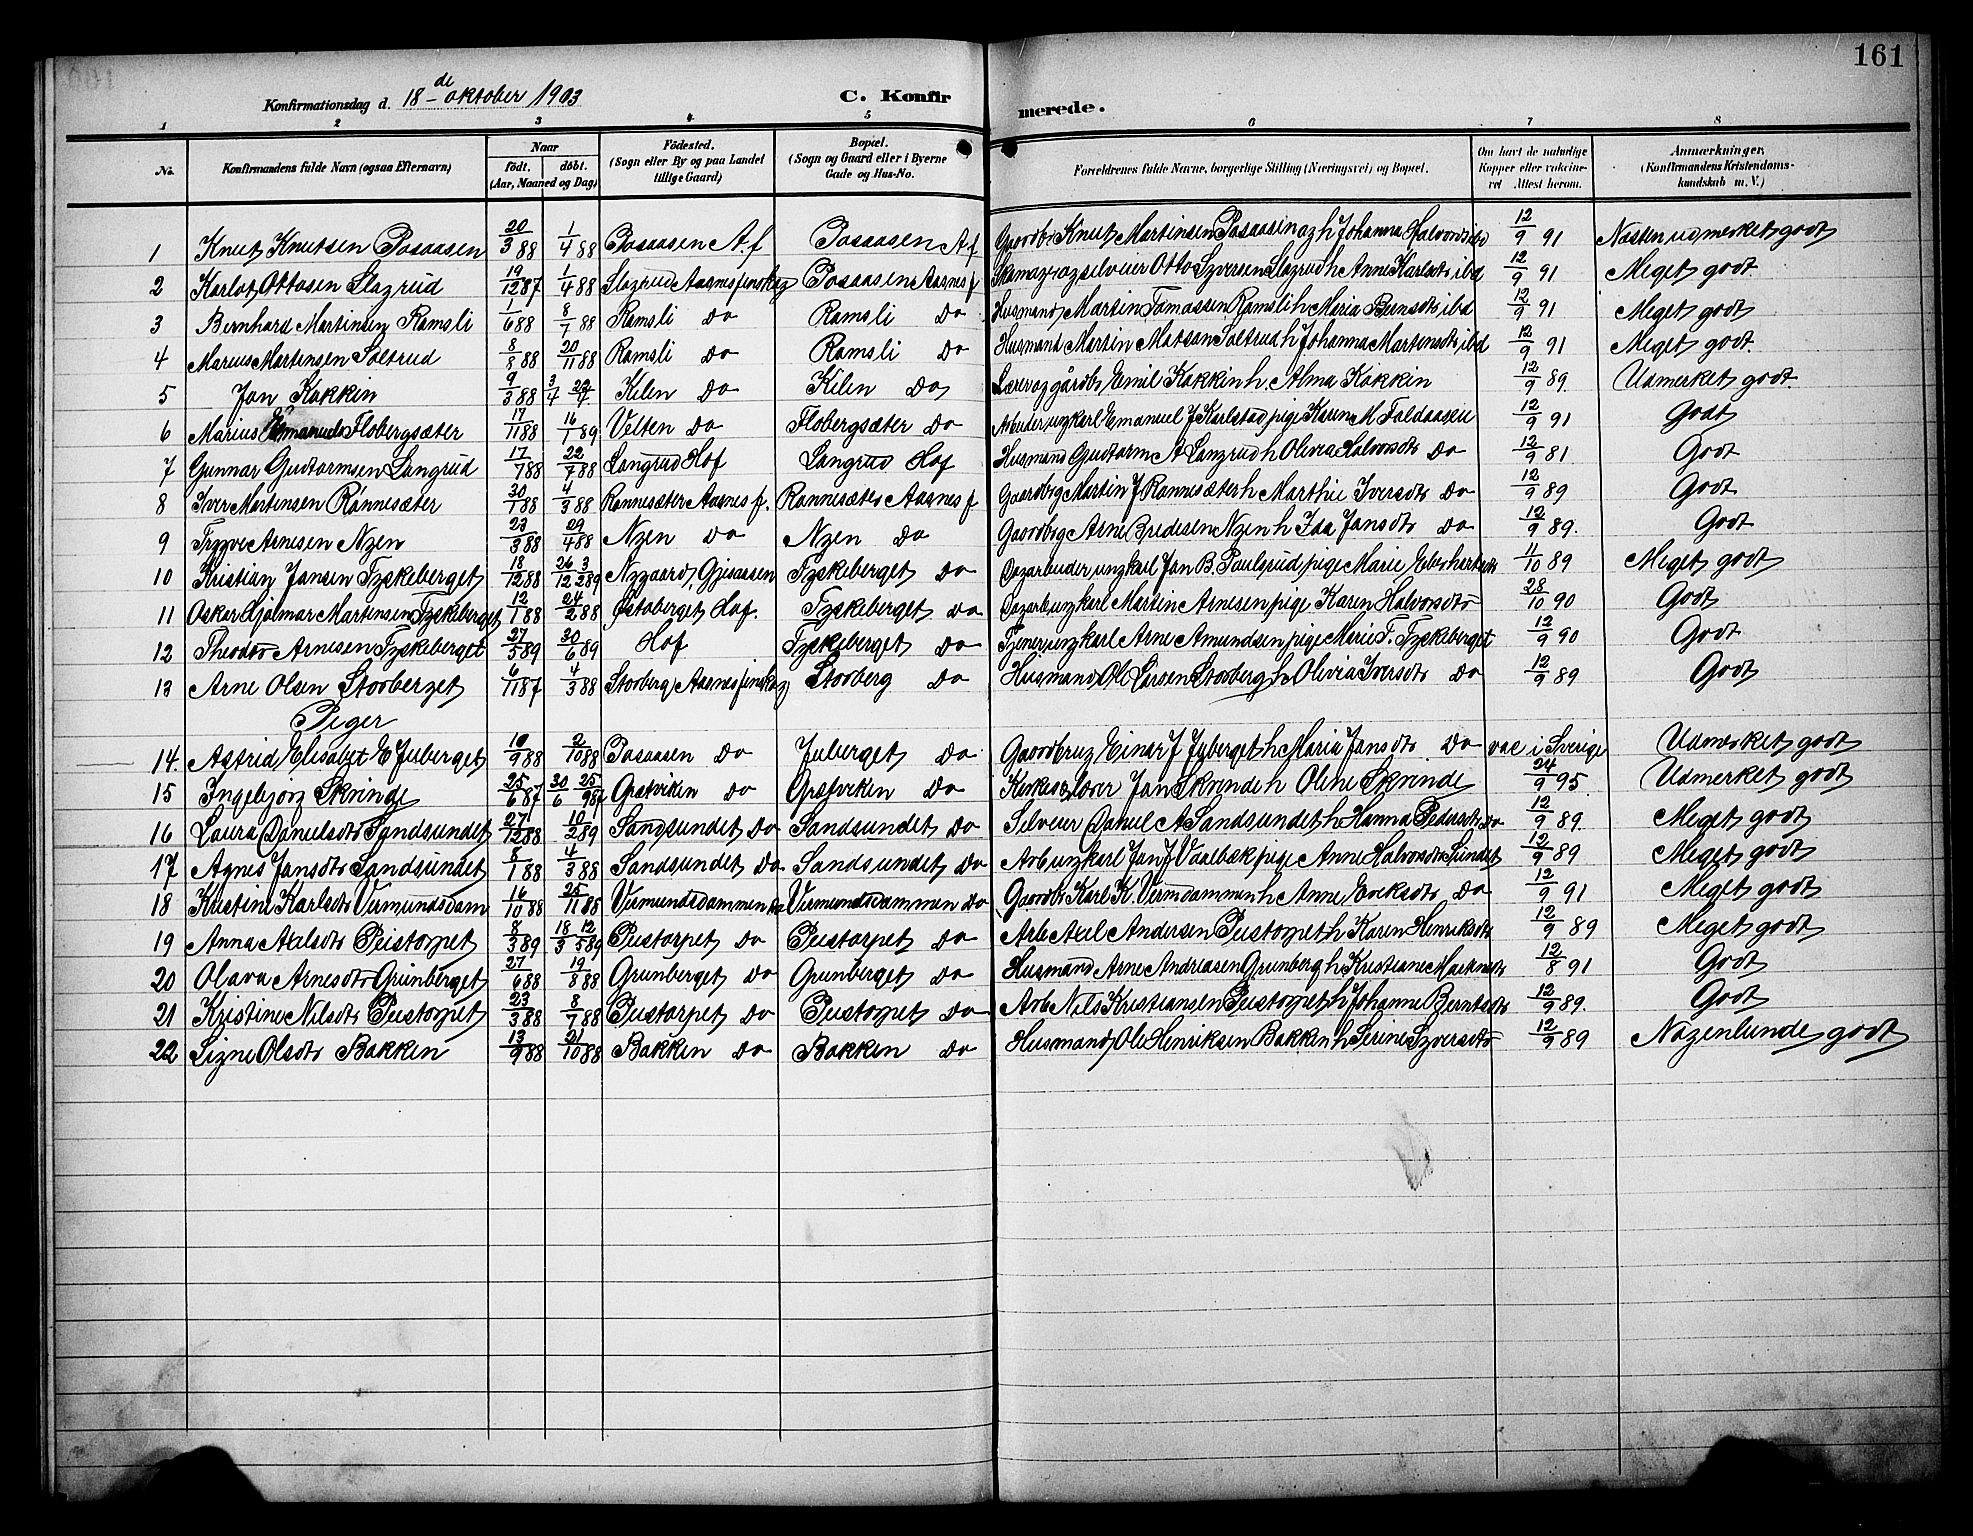 161
Konfirmationsdag d. 18de oktober 1903
C. Konfirmerede.
1 2 3 4 5 6 7 8
No. Konfirmandens fulde Navn (ogsaa Efternavn) Naar født. døbt. (Aar, Maaned og Dag) Fødested. (Sogn eller By og paa Landet tillige Gaard) Bopæl. (Sogn og Gaard eller i Byerne Gade og Hus-No.) Forældrenes fulde Navne, borgerlige Stilling (Næringsvei) og Bopæl. Om havt de naturlige Kopper eller vakcineret Attest herom. Anmærkninger. (Konfirmandens Kristendomskundskab m. V.)
1 Knut Knutsen Posaasen 20/3 88 1/4 88 Posaasen A.f Posaasen A.f Gaardbr Knut Martinsen Posaasen og h Johanna Halvorsd ibd 12/9 91 Næsten udmerket godt
2 Karlot Ottosen Slagrud 19/12 87 1/4 88 Slagrud Aasnes finskog Posaasen Aasnes f Otto Syversen Slagrud h Anne Karlsdtr ibd 12/9 91 Meget godt
3 Bernhard Martinsen Ramsli 1/6 88 8/7 88 Ramsli do Ramsli do Husmand Martin Tomassen Ramsli h Maria Berntsdtr ibd 12/9 91 Meget godt
4 Marius Martinsen Soltrud 8/8 88 20/11 88 Ramsli do Ramsli do Husmand Martin Matsen Soltrud h Johanna Martinsdtr ibd 12/9 91 Meget godt.
5 Jon Kokkin 9/3 88 3/4 22/7 Kilen do Kilen do Lærer og gårdbr Emil Kokkin h Alma Kokkin 12/9 89. Udmerket godt
6 Marius Emanuels Flobergsæter 17/11 88 16/1 89 Velten do Flobergsæter do Arbeider ungkarl Emanuel J Karlstad pige Karen M Foldaasen 12/9 91 Godt
7 Gunnar Gudtormsen Langrud 17/7 88 22/7 88 Langrud Hof Langrud Hof Husmand Gudtorm A Langrud h Olivia Halvorsdtr do 12/9 81 Godt
8 Iver Martinsen Rønnesæter 30/1 88 4/3 88 Rønnesæter Aasnes f. Rønnesæter Aasnes f Gaardbrg Martin J Rønnesæter h Marthie Iversdtr do 12/9 89 Godt
9 Trygve Arnesen Nyen 23/3 88 29/4 88 Nyen do Nyen do Gaardbrg Arne Bredesen Nyen h Ida Jonsdtr do 12/9 89. Godt
10 Kristian Jonsen Tyskeberget 18/12 88 26/12 3/2 89 Nygaard, Gjesaasen Tyskeberget do Dagarbeider ungkarl Jon B. Paulsrud pige Marie Eberhartsdtr 11/10 89 Meget godt
11 Oskar Hjalmar Martinsen Tyskeberget 12/1 88 24/2 88 Hof. Tyskeberget do Dagarb ungkarl Martin Arnesen pige Karen Halvorsdtr 28/10 90 Godt
12 Theodor Arnesen Tyskeberget 27/5 89 30/6 89 Hof Tyskeberget do Tjener ungkarl Arne Amundsen pige Marie F. Tyskeberget 12/9 90 Godt
13 Arne Olsen Storberget 6/11 87 4/3 88 Storberg Aasnes finskog Storberg do Husmand Ole Larsen Storberg h Olivia Iversdtr do 12/9 89 Godt
Piger
14. Astrid Elisabet E Juberget 10/9 88 2/10 88 Posaasen do Juberget do Gaardbrug Einar J Juberget h Maria Jonsdtr do vac i Sverige Udmerket godt
15 Ingebjørg Skrinde 25/6 87 30/6 25/9 87 Grøtviken do Grøtviken do Kirkes lærer Jon Skrinde h Oline Skrinde 24/9 95 Udmerket godt
16 Laura Danielsdtr Sandsundet 27/12 88 10/2 89 Sandsundet do Sandsundet do Selveier Daniel A Sandsundet h Hanna Pedersdtr do 12/9 89. Meget godt
17 Agnes Jonsdtr Sandsundet 8/1 88 4/3 88 Sandsundet do Sandsundet do Arb ungkarl Jon J Vaalbæk pige Anne Halvorsdtr Sundet 12/9 89 Meget godt
18 Kristine Karlsdtr Vermundsdam 16/10 88 25/11 88 Vermundsdammen do Vermundsdammen do Gaardbr Karl K. Vermdammen h Anne Eriksdtr do 12/9 91 Meget godt
19 Anna Axelsdtr Peistorpet 8/3 89 18/3 12/5 89 Peistorpet do Peistorpet do Arb Axel Andersen Peistorpet h Karen Henriksdtr 12/9 89 Meget godt
20 Olava Arnesdtr Grünberget 27/6 88 19/8 88 Grünberget do Grünberget do Husmand Arne Andreasen Grünberg h Kristiane 12/8 91 Godt
21 Kristine Nilsdtr Peistorpet 23/3 88 8/7 88 Peistorpet do Peistorpet do Arb Nils Kristiansen Peistorpet h Johanne Berntsdtr 12/9 89. Godt
22 Signe Olsdtr Bakken 13/9 88 21/10 88 Bakken do Bakken do Husmand Ole Henriksen Bakken h Serine Syversdtr 12/9 89 Nogenlunde godt